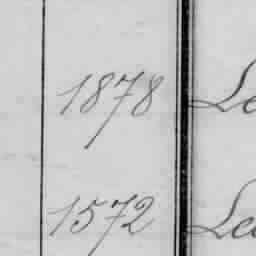 1878 Le
1572 Lea